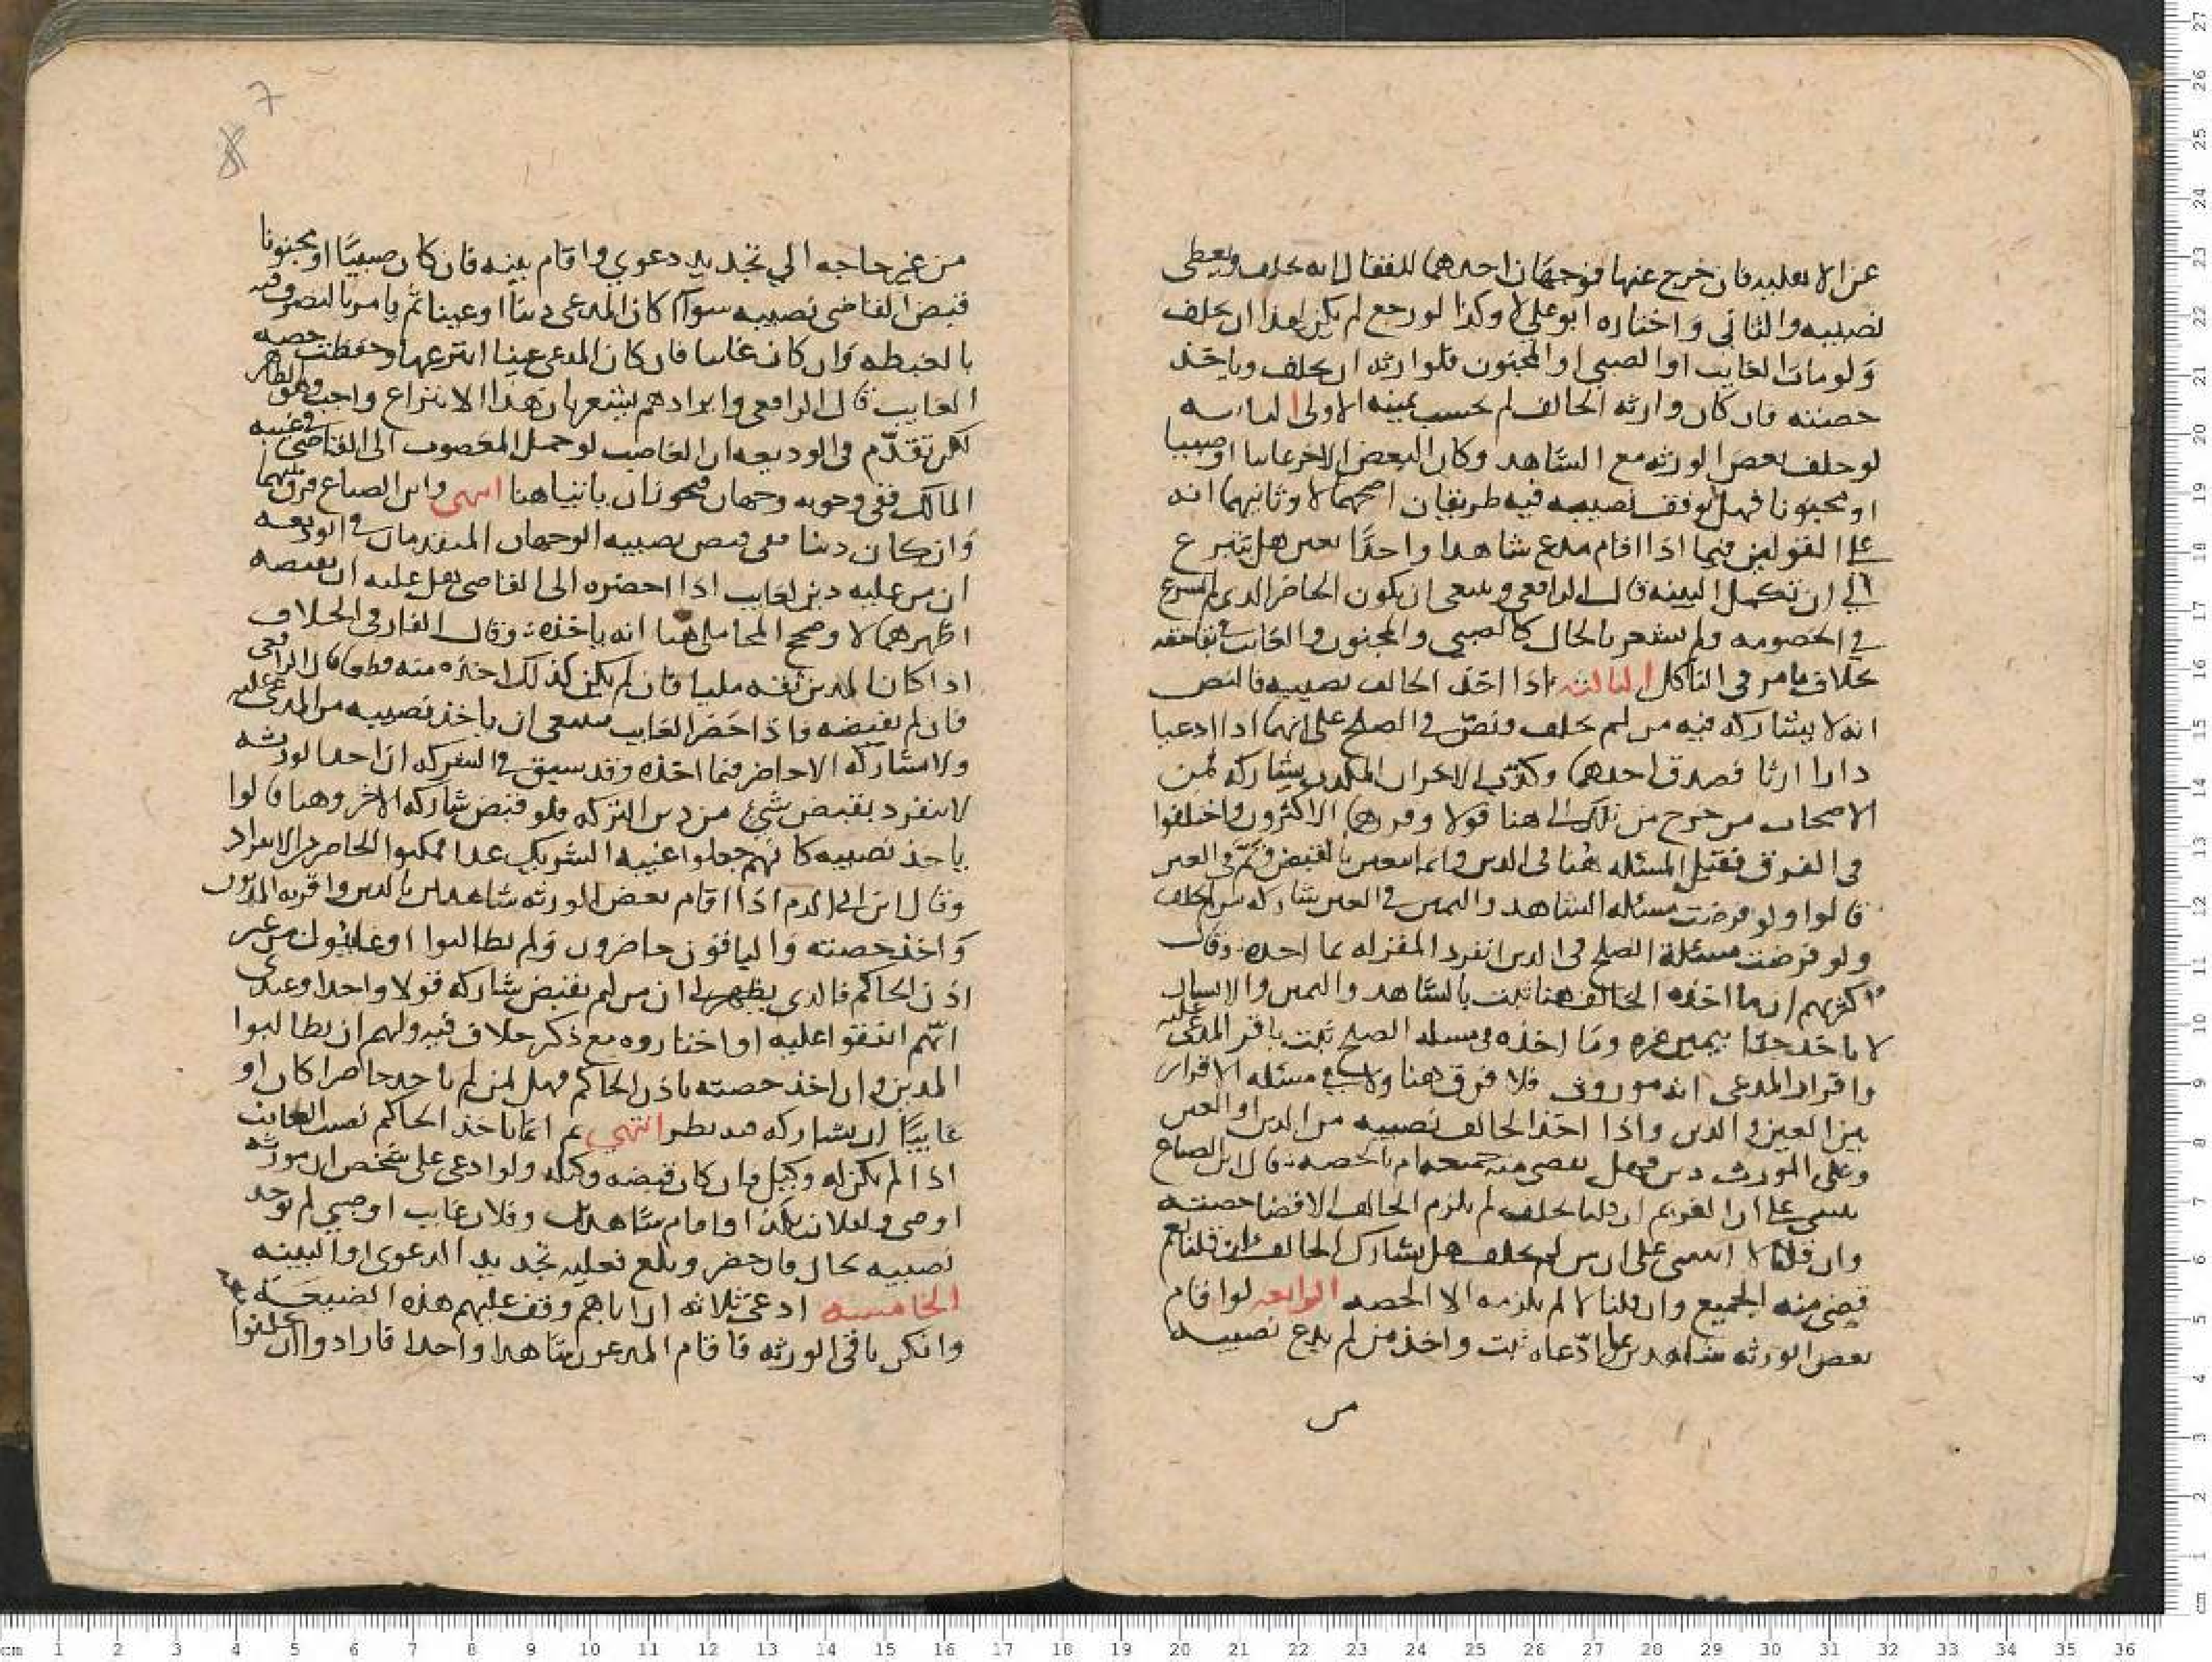 عن الاهليه فان خرج عنها فوجهان احدهما للقفال انه يحلف ويعطى
نصيبه والثاني واختاره ابو علي لا وكذا لو رجع لم يكن لهذا ان يحلف
ولو مات الغايب او الصبي او المجنون فلوارثه ان يحلف وياخذ
حصته فان كان وارثه الحالف لم تحسب يمينه الاولى الثانيه
لو حلف بعض الورثه مع الشاهد وكان البعض الاخر غايبا او صبيا
او مجنونا فهل توقف نصيبه فيه طريقان اصحهما لا وثانيهما انه
على القولين فيما اذا اقام مدع شاهدا واحدا بعين هل تنزع
الى ان تكمل البينه قال الرافعي وينبغي ان يكون الحاضر الذي لم يشرع
في الخصومه ولم يشعر بالحال كالصبي والمجنون والغايب في بقا حقه
بخلاف ما مر في الناكل الثالثه اذا اخذ الحالف نصيبه فالنص
انه لا يشاركه فيه من لم يحلف ونص في الصلح على انهما اذا ادعيا
دارا ارثا فصدق احدهما وكذب الاخر ان المكذب يشاركه فمن
الاصحاب من خرج من تلك الى هنا قولا وفرق الاكثرون واختلفوا
في الفرق فقيل المسئله هنا في الدين وانما يتعين بالقبض وثم في العين
قالوا ولو فرضت مسئله الشاهد واليمين في العين شاركه من لم يحلف
ولو فرضت مسئلة الصلح في الدين انفرد المقر له بما اخذه وقال
اكثرهم ان ما اخذه الحالف هنا ثبت بالشاهد واليمين والانسان
لا ياخذ حقا بيمين غيره وما اخذه في مسله الصلح ثبت باقرار المدعى عليه
واقرار المدعي انه موروث فلا فرق هنا ولا في مسئله الاقرار
بين العين والدين واذا اخذ الحالف نصيبه من الدين او العين
وعلى المورث دين فهل يقضى منه جميعه ام بالحصه قال ابن الصباغ
ينبني على ان الغريم ان قلنا يحلف لم يلزم الحالف الا قضا حصته
وان قلنا لا انبنى على ان من لم يحلف هل يشارك الحالف ان قلنا نعم
قضى منه الجميع وان قلنا لا لم يلزمه الا الحصه الرابعه لو اقام
بعض الورثه شاهدين بما ادعاه ثبت واخذ من لم يدع نصيبه
من
7
8
من غير حاجه الى تجديد دعوي واقام بينه فان كان صبيا او مجنونا
قبض القاضي نصيبه سواا كان المدعى دينا او عينا ثم يامر بالتصرف فيه
بالغبطه وان كان غايبا فان كان المدعى عينا انتزعها وحفظت حصه
الغايب قال الرافعي وايرادهم يشعر بان هذا الانتزاع واجب وهو الظاهر
لكن تقدم في الوديعه ان الغاصب لو حمل المغصوب الى القاضي في غيبه
المالك ففي وجوبه وجهان فيجوز ان ياتيا هنا انتهى وابن الصباغ فرق بينهما
وان كان دينا ففي قبض نصيبه الوجهان المتقدمان في الوديعه
ان من عليه دين لغايب اذا احضره الى القاضي هل عليه ان يقبضه
اظهرهما لا وصحح المحاملي هنا انه ياخذه وقال الفارقي الخلاف
اذا كان المدين ثقه مليا فان لم يكن كذلك اخذه منه قطعا قال الرافعي
فان لم يقبضه فاذا حضر الغايب فينبغي ان ياخذ نصيبه من المدعى عليه
ولا يشاركه الحاضر فيما اخذه وقد سبق في الشركه ان احد الورثه
لا ينفرد بقبض شيئ من دين التركه فلو قبض شاركه الاخر وهنا قالوا
ياخذ نصيبه كانهم جعلوا غيبه الشريك عذرا ممكنوا الحاضر من الانفراد
وقال ابن ابي الدم اذا اقام بعض الورثه شاهدين بالدين واقر به المديون
واخذ حصته والباقون حاضرون ولم يطالبوا او غايبون من غير
اذن الحاكم فالذي يظهر لي ان من لم يقبض شاركه قولا واحدا وعندي
انهم اتفقوا عليه او اختاروه مع ذكر خلاف فيه ولهم ان يطالبوا
المدين وان اخذ حصته باذن الحاكم فهل لمن لم ياخذ حاضرا كان او
غايبا ان يشاركه فيه نظر انتهي ثم انما ياخذ الحاكم نصيب الغايب
اذا لم يكن له وكيل فان كان قبضه وكيله ولو ادعى على شخص ان مورثه
اوصى له ولفلان بكذا واقام شاهدين وفلان غايب او صبي لم يوخذ
نصيبه بحال فان حضر وبلغ فعليه تجديد الدعوى والبينه
الخامسه ادعى ثلاثه ان اباهم وقف عليهم هذه الضيعه
وانكر باقي الورثه فاقام المدعون شاهدا واحدا فارادوا ان يحلفوا